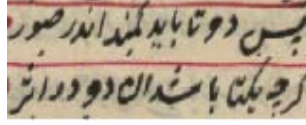 پس دو تا باید کمند اندر صور
گرچه یکتا باشد آن دو در اثر